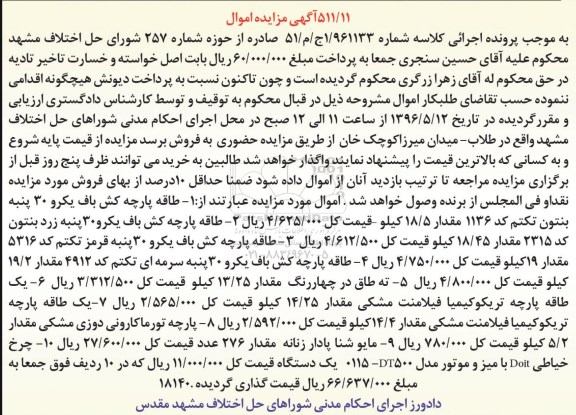 ۵۱۱/۱۱ آگهی مزایده اموال
به موجب پرونده اجرائی کلاسه شماره ۱/۹۶۱۱۳۳ج/م/۵۱ صادره از حوزه شماره ۲۵۷ شورای حل اختلاف مشهد
محکوم علیه آقای حسین سنجری جمعا به پرداخت مبلغ ۶۰/۰۰۰/۰۰۰ریال بابت اصل خواسته و خسارت تاخیر تادیه
در حق محکوم له آقای زهرا زرگری محکوم گردیده است و چون تاکنون نسبت به پرداخت دیونش هیچگونه اقدامی
ننموده حسب تقاضای طلبکار اموال مشروحه ذیل در قبال محکوم به توقیف و توسط کارشناس دادگستری ارزیابی
و مقرر گردیده در تاریخ ۱۳۹۶/۵/۱۲ از ساعت ۱۱ الی ۱۲ صبح در محل اجرای احکام مدنی شوراهای حل اختلاف
مشهد واقع در طلاب- میدان میرزاکوچک خان از طریق مزایده حضوری به فروش برسد مزایده از قیمت پایه شروع
و به کسانی که بالاترین قیمت را پیشنهاد نمایند واگذار خواهد شد طالبین به خرید می توانند ظرف پنج روز قبل از
برگزاری مزایده مراجعه تا ترتیب بازدید آنان از اموال داده شود ضمنا حداقل ۱۰درصد از بهای فروش مورد مزایده
نقدا و فی المجلس از برنده وصول خواهد شد. اموال مورد مزایده عبارتند از:۱- طاقه پارچه کش باف یکرو ۳۰ پنبه
بنتون تکتم کد ۱۱۳۶ مقدار ۱۸/۵ کیلو -قیمت کل ۴/۶۲۵/۰۰۰ ریال ۲- طاقه پارچه کش باف یکرو۳۰پنبه زرد بنتون
کد ۲۳۱۵ مقدار ۱۸/۴۵ کیلو قیمت کل ۴/۶۱۲/۵۰۰ ریال ۳- طاقه پارچه کش باف یکرو ۳۰پنبه قرمز تکتم کد ۵۳۱۶
مقدار ۱۹کیلو قیمت کل ۴/۷۵۰/۰۰۰ ریال ۴- طاقه پارچه کش باف یکرو ۳۰پنبه سرمه ای تکتم کد ۴۹۱۲ مقدار ۱۹/۲
کیلو قیمت کل ۴/۸۰۰/۰۰۰ ریال ۵- ته طاق در چهاررنگ مقدار ۱۳/۲۵ کیلو قیمت کل ۳/۳۱۲/۵۰۰ ریال ۶- یک
طاقه پارچه تریکوکیمیا فیلامنت مشکی مقدار ۱۴/۲۵ کیلو قیمت کل ۲/۵۶۵/۰۰۰ ریال ۷-یک طاقه پارچه
تریکوکیمیا فیلامنت مشکی مقدار ۱۴/۴کیلو قیمت کل ۲/۵۹۲/۰۰۰ ریال ۸- پارچه تورماکارونی دوزی مشکی مقدار
۵/۲ کیلو قیمت کل ۷۸۰/۰۰۰ ریال ۹- مایو شنا پادار زنانه مقدار ۲۷۶ عدد قیمت کل ۲۷/۶۰۰/۰۰۰ ریال ۱۰- چرخ
خیاطی Doit با میز و موتور مدل DT۵۰۰- ۰۱۱۵ یک دستگاه قیمت کل ۱۱/۰۰۰/۰۰۰ ریال که در ۱۰ ردیف فوق جمعا به
مبلغ ۶۶/۶۳۷/۰۰۰ ریال قیمت گذاری گردیده .۱۸۱۴۰
دادورز اجرای احکام مدنی شوراهای حل اختلاف مشهد مقدس